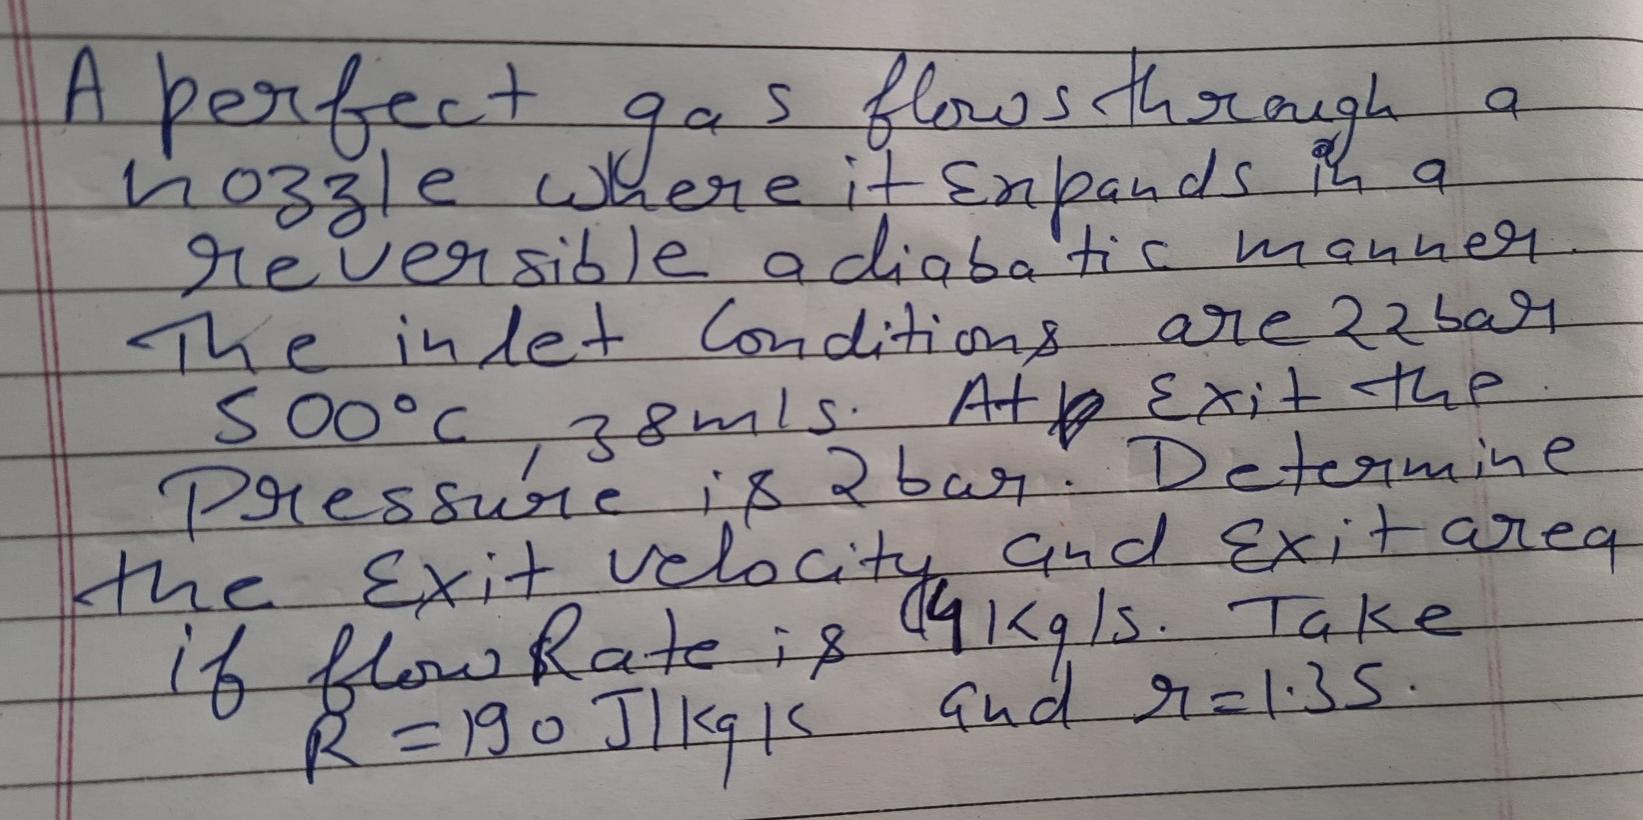 A perfect gas flows through a
nozzle where it Expands in a
reversible adiabatic manner.
The inlet Conditions are 22 bar
500°C, 38m/s. At Exit the
Pressure is 2 bar. Determine
the Exit velocity and Exit area
if flow Rate is 4 Kg/s. Take
R = 190 J/KgK and r=1.35.